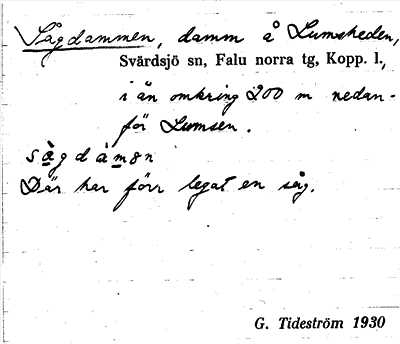 Sågdammen, damm å Lumsheden,
Svärdsjö sn, Falu norra tg, Kopp. l.,
i ån omkring 200 m nedan-
för Lumsen.
sågdàmən
Där har förr legat en såg.
G. Tideström 1930